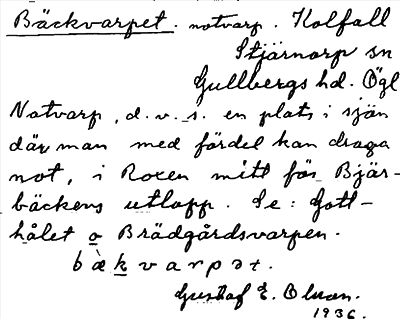 Bäckvarpet. notvarp. Kolfall
Stjärnorp sn
Gullbergs hd. Ögl
Notvarp, d.v.s. en plats i sjön
där man med fördel kan draga
not, i Roxen mitt för Bjär-
bäckens utlopp. Se: Gott-
hålet o Brädgårdsvarpen.
bæ̀kvarpət.
Gustaf E. Olson.
1936.